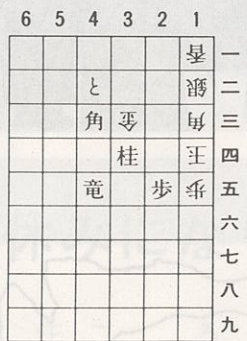 6 5 4 3 2 1
香 一
と 銀 二
角 金 角 三
桂 王 四
竜 歩 歩 五
六
七
八
九